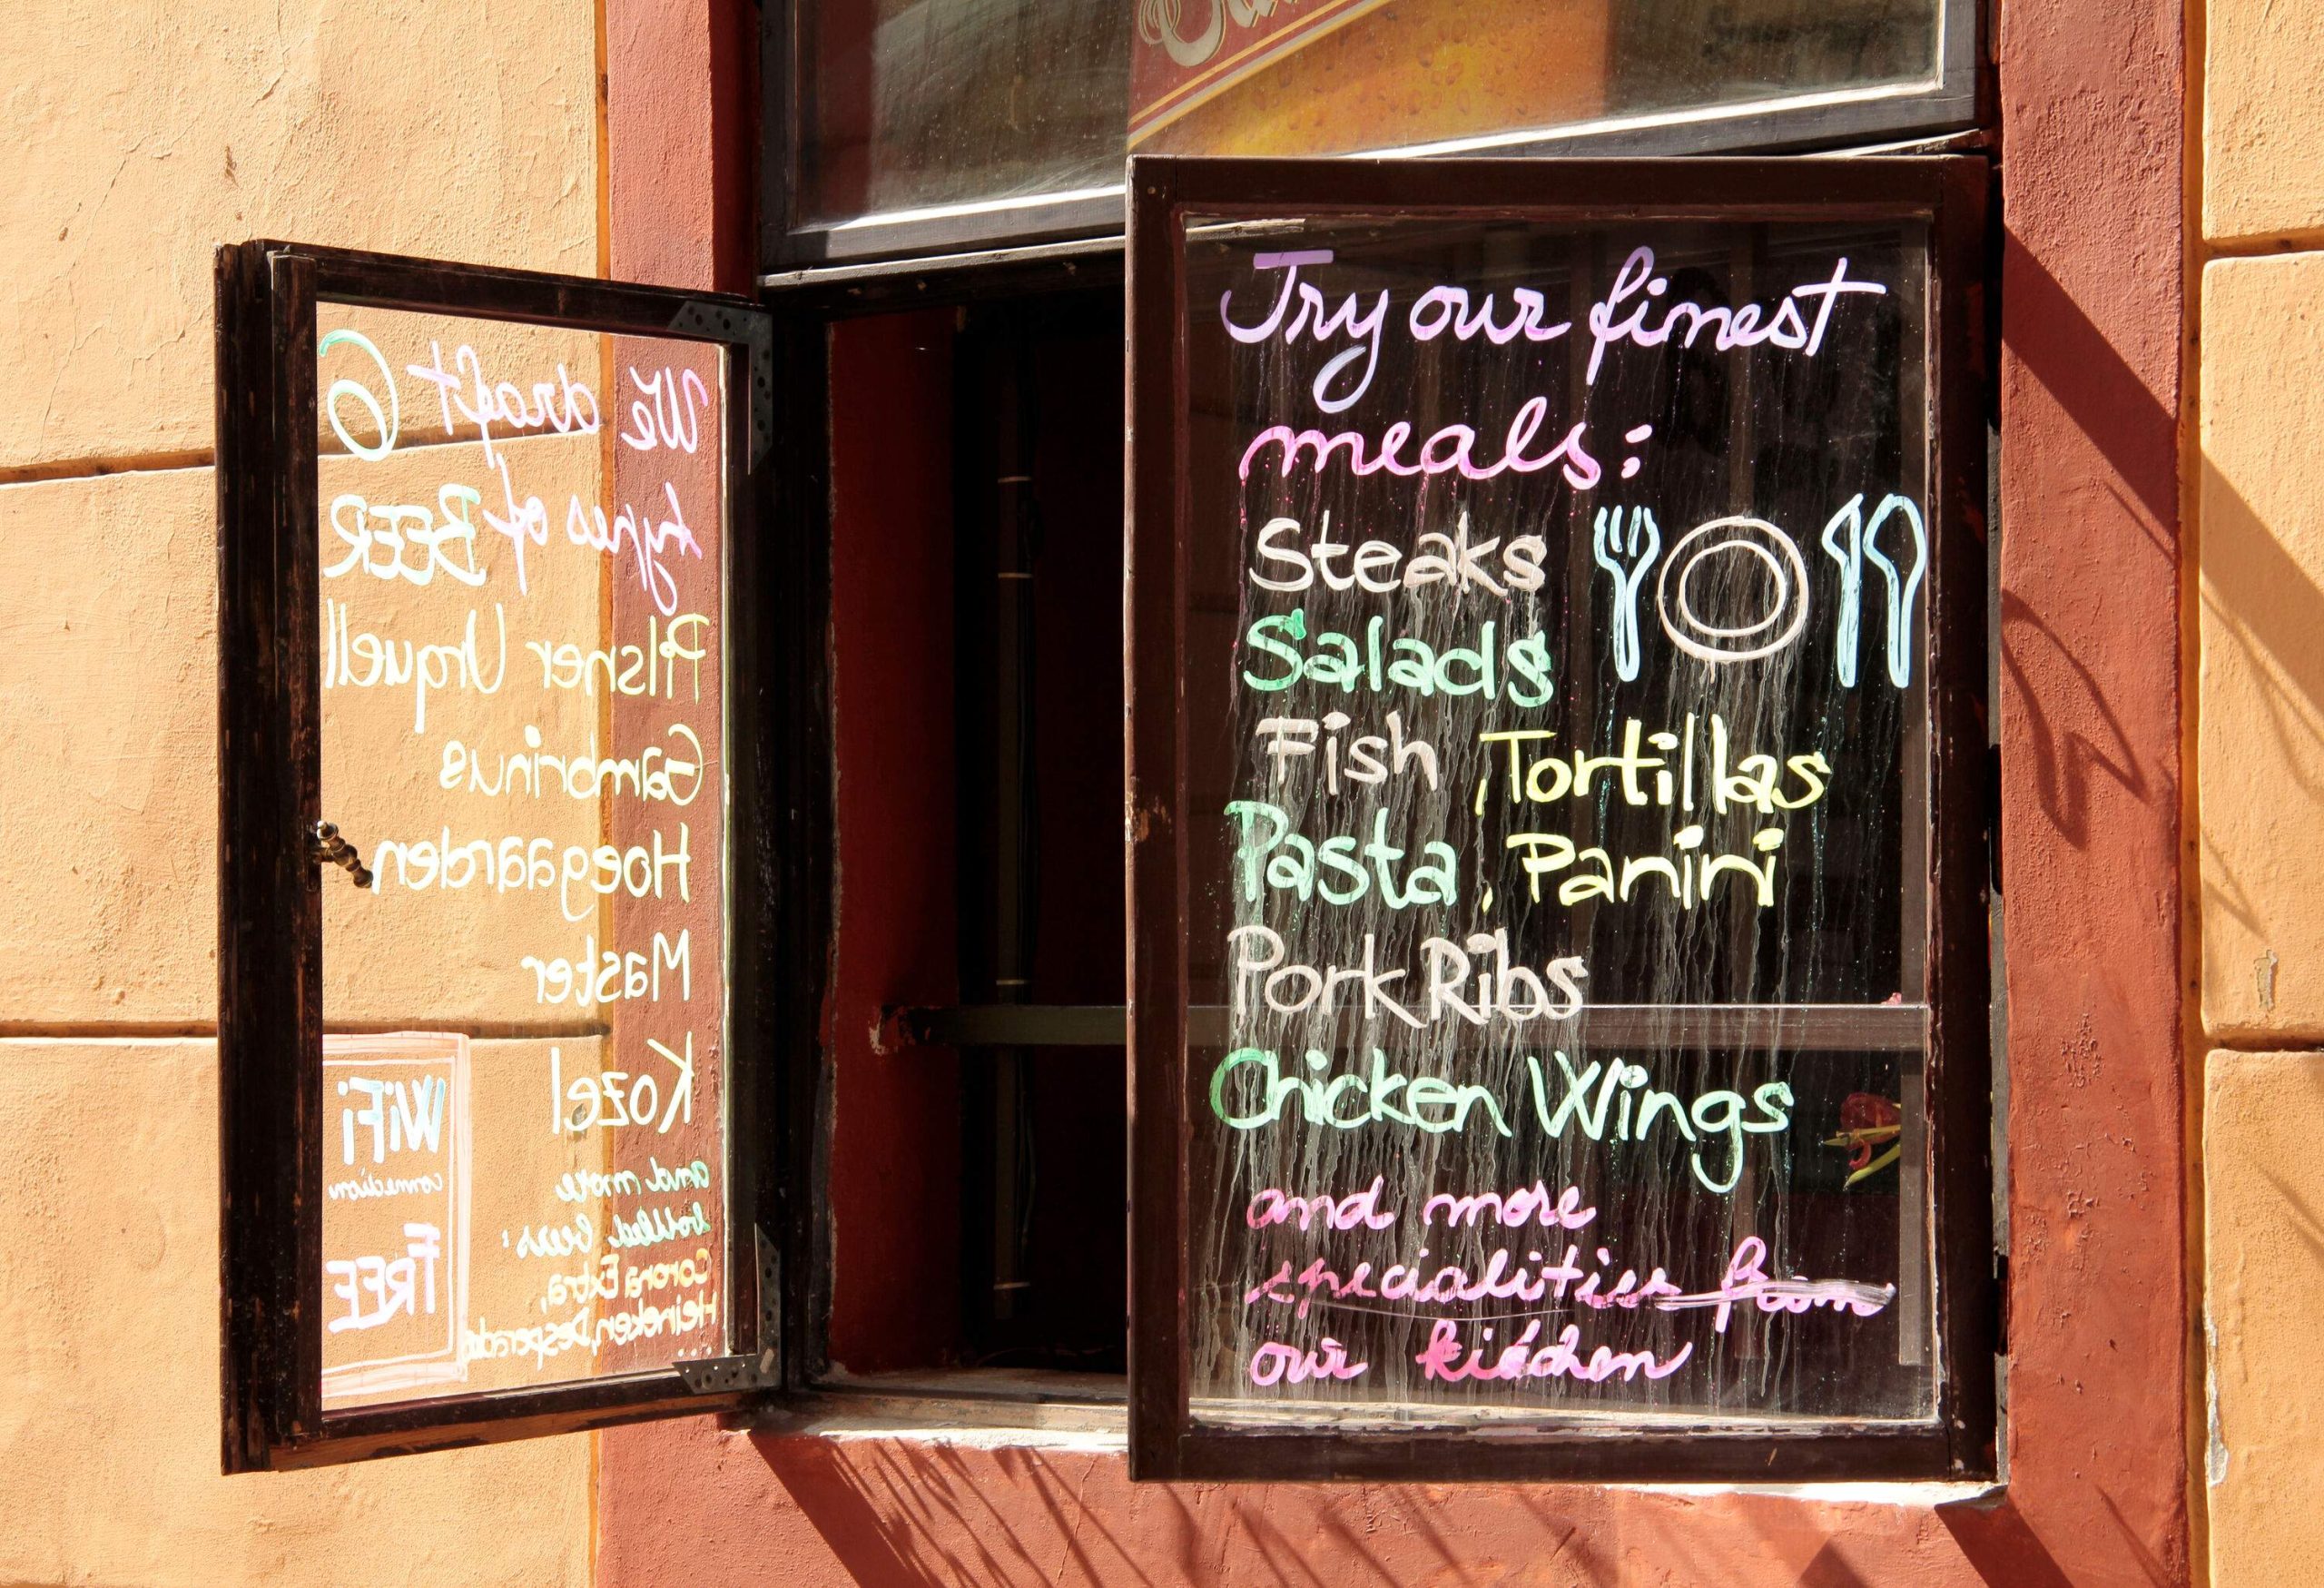 We draft 6
types of BEER
Pilsner Urquell
Gambrinus
Hoegaarden
Master
Kozel
and more
bottled beers:
Corona Extra,
Heineken, Desperado
...
WiFi
connection
FREE
Try our finest
meals:
Steaks
Salads
Fish, Tortillas
Pasta, Panini
Pork Ribs
Chicken Wings
and more
specialities from
our kitchen